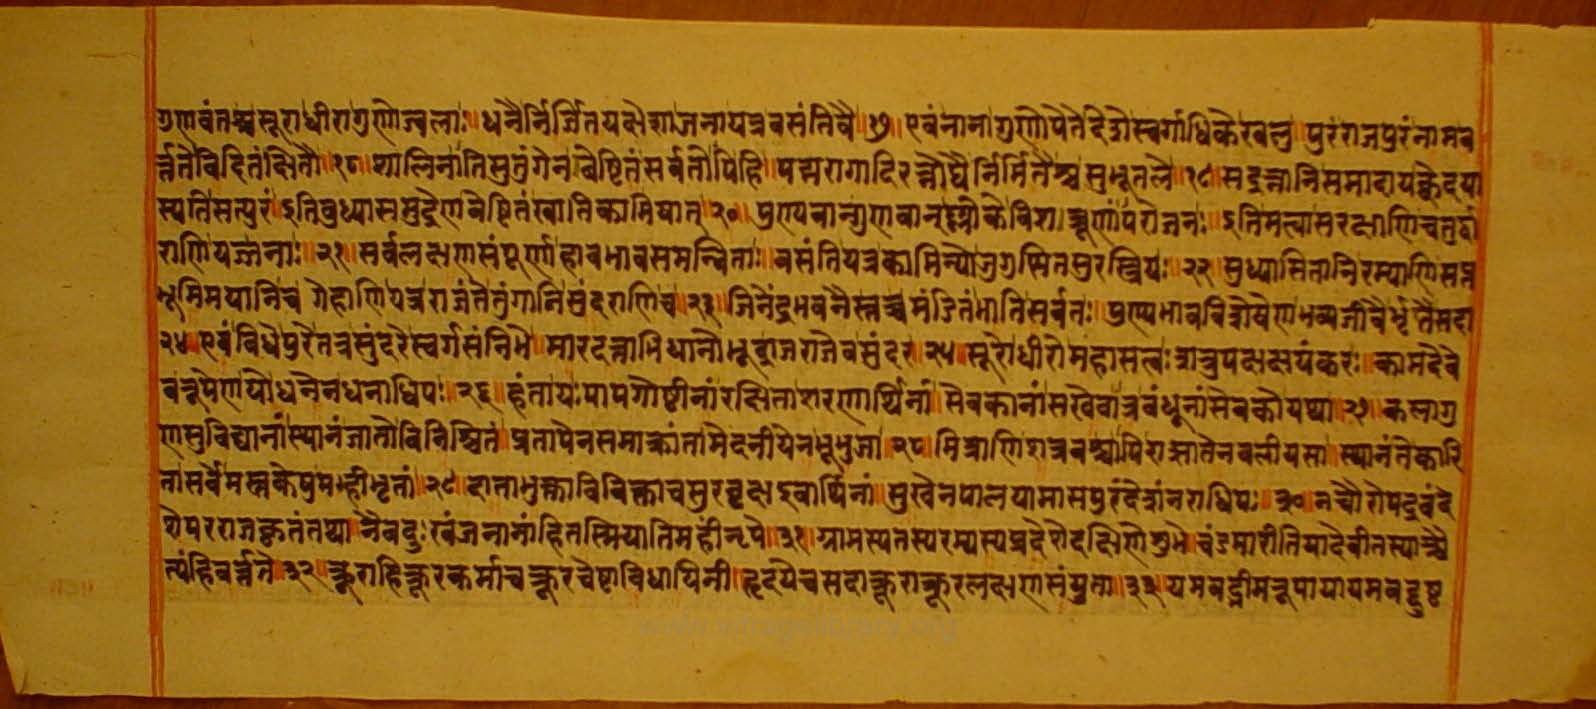 गुणवंतश्च सूरा धीरा गुणोज्वलाः॥ धनैर्निर्जितयक्षेशा जना यत्र वसंति वै॥१७॥ एवं नाना गुणोपेते देशे स्वर्गाधिके खलु॥ पुरं राजपुरं नाम व
र्त्तते विदितं क्षितौ॥१८॥ शालिनातिसुतुंगेन वेष्टितं सर्वतोपि हि॥ पद्मरागादिरत्नौघैर्निर्मितैश्च सुभूतले॥१९॥ सद्रत्नानि समादाय क्वेदं या
स्यति सत्पुरं॥ इति बुध्या समुद्रेण वेष्टितं खातिकामियात्॥२०॥ पुण्यवान्गुणवान् विशेन्नॄणां परो जनः॥ इति मत्वा सरक्षाणि चतुर्द्वा
राणि यज्जनाः॥२१॥ सर्वलक्षणसंपूर्णा हावभावसमन्विताः॥ वसंति यत्र कामिन्यो जुगुप्सितसुरस्त्रियः॥२२॥ सुध्यासितानि रम्याणि सप्त
भूमिमयानि च गेहाणि यत्र राजंते तुंगानि सुंदराणि च॥२३॥ जिनेंद्रभवनैस्तच्च मंडितं भाति सर्वतः॥ पुण्यभावविशेषेण भव्यजीवैर्भृतं सदा
२४॥ एवं विधे पुरे तत्र सुंदरे स्वर्गसंनिभे॥ मारदत्ताभिधानो भूद्राजराजेव सुंदर॥२५॥ सूरो धीरो महासत्वः शत्रुपक्षक्षयंकरः॥ कामदेवे
व रूपेण यो धनेन धनाधिपः॥२६॥ हंता यः पापगोष्टीनां रक्षिता शरणार्थिनां॥ सेवकानां सखेवात्र बंधूनां सेवको यथा॥२७॥ कलागु
णसुविद्यानां स्थानं जातो विनिश्चितं॥ प्रतापेन समाक्रांता मेदनी येन भूभुजा॥२८॥ मित्राणि शत्रवश्चापि राज्ञा तेन बलीयसा॥ स्थानं ते कारि
ता सर्वे मस्तकेषु महीभृतां॥२९॥ दाता भुक्ता विविक्ता च सुरवृक्ष इवार्थिनां॥ सुखेन पालयामास पुरं देशं नराधिपः॥३०॥ न चौरोपद्रवं दे
शे परराजकृतं तथा॥ नैव दुःखं जनानां हि तस्मियाति महीं नृपे॥३१॥ ग्रामस्य तस्य रम्यस्य प्रदेशे दक्षिणे शुभे॥ चंडमारीति या देवी तस्याश्चै
त्यं हि वर्त्तते॥३२॥ क्रूरा हि क्रूरकर्मा च क्रूरचेष्टाविधायिनी॥ हृदये च सदा क्रूरा क्रूरलक्षणसंयुता॥३३॥ यमवद्भीमरूपा या यमवद्दुष्ट